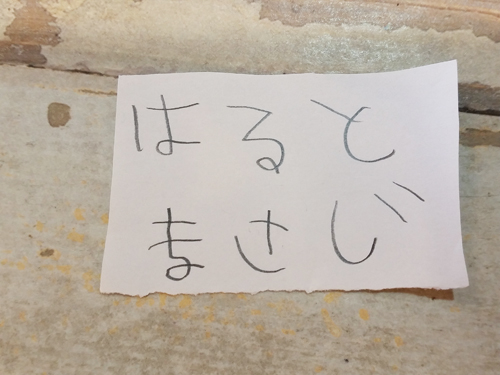 はると
まさじ